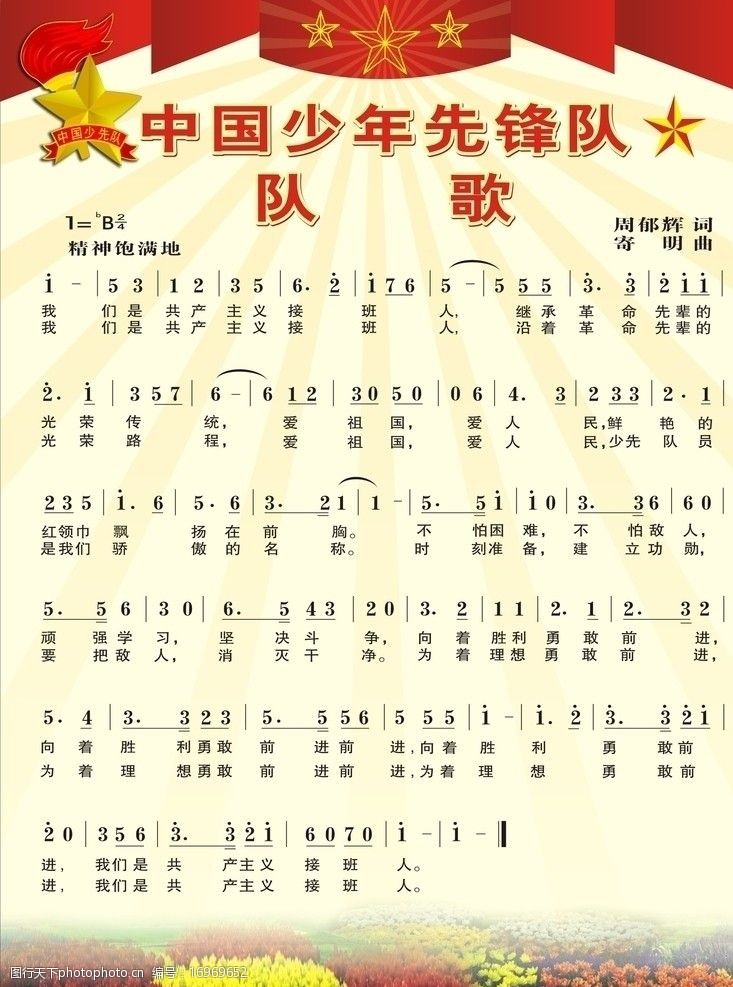 中国少先队
中国少年先锋队
队 歌
1= ᵇB 2/4
周郁辉 词
精神饱满地
寄 明 曲
i - | 5 3 | 1 2 | 3 5 | 6. 2̇ | i 7 6 | 5 - | 5 5 5 | 3̇. 3̇ | 2̇ i i |
我 们是 共产 主义 接 班 人, 继承 革 命 先辈的
我 们是 共产 主义 接 班 人, 沿着 革 命 先辈的
2̇. i | 3 5 7 | 6 - | 6 1 2 | 3 0 5 0 | 0 6 | 4. 3 | 2 3 3 | 2 · 1 |
光 荣 传 统, 爱 祖 国, 爱 人 民,鲜 艳 的
光 荣 路 程, 爱 祖 国, 爱 人 民,少先 队 员
2 3 5 | i. 6 | 5. 6 | 3. 2 1 | 1 - | 5. 5 i | i 0 | 3. 3 6 | 6 0 |
红领巾 飘 扬 在 前 胸。 不 怕困 难, 不 怕敌 人,
是我们 骄 傲 的 名 称。 时 刻准 备, 建 立功 勋,
5. 5 6 | 3 0 | 6. 5 4 3 | 2 0 | 3. 2 | 1 1 | 2. 1 | 2. 3 2 |
顽 强学 习, 坚 决斗 争, 向 着 胜利 勇 敢 前 进,
要 把敌 人, 消 灭干 净。 为 着 理想 勇 敢 前 进,
5. 4 | 3. 3 2 3 | 5. 5 5 6 | 5 5 5 | i - | i. 2̇ | 3̇. 3̇ 2̇ i |
向 着 胜 利勇敢 前 进前 进,向着 胜 利 勇 敢前
为 着 理 想勇敢 前 进前 进,为着 理 想 勇 敢前
2̇ 0 | 3 5 6 | 3̇. 3̇ 2̇ i | 6 0 7 0 | i - | i - ‖
进, 我们是 共 产主义 接 班 人。
进, 我们是 共 产主义 接 班 人。
图行天下photophoto.cn 编号:16969652